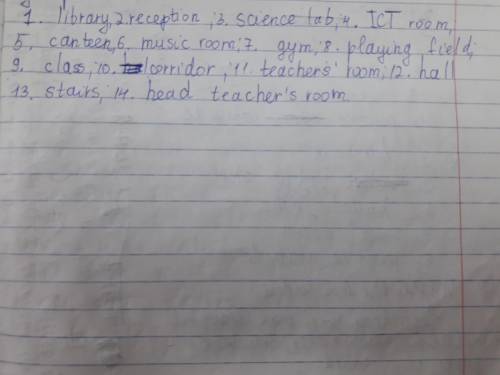 1. library, 2. reception, 3. science lab, 4. ICT room,
5. canteen, 6. music room, 7. gym, 8. playing field,
9. class, 10. corridor, 11. teachers' room, 12. hall
13. stairs, 14. head teacher's room